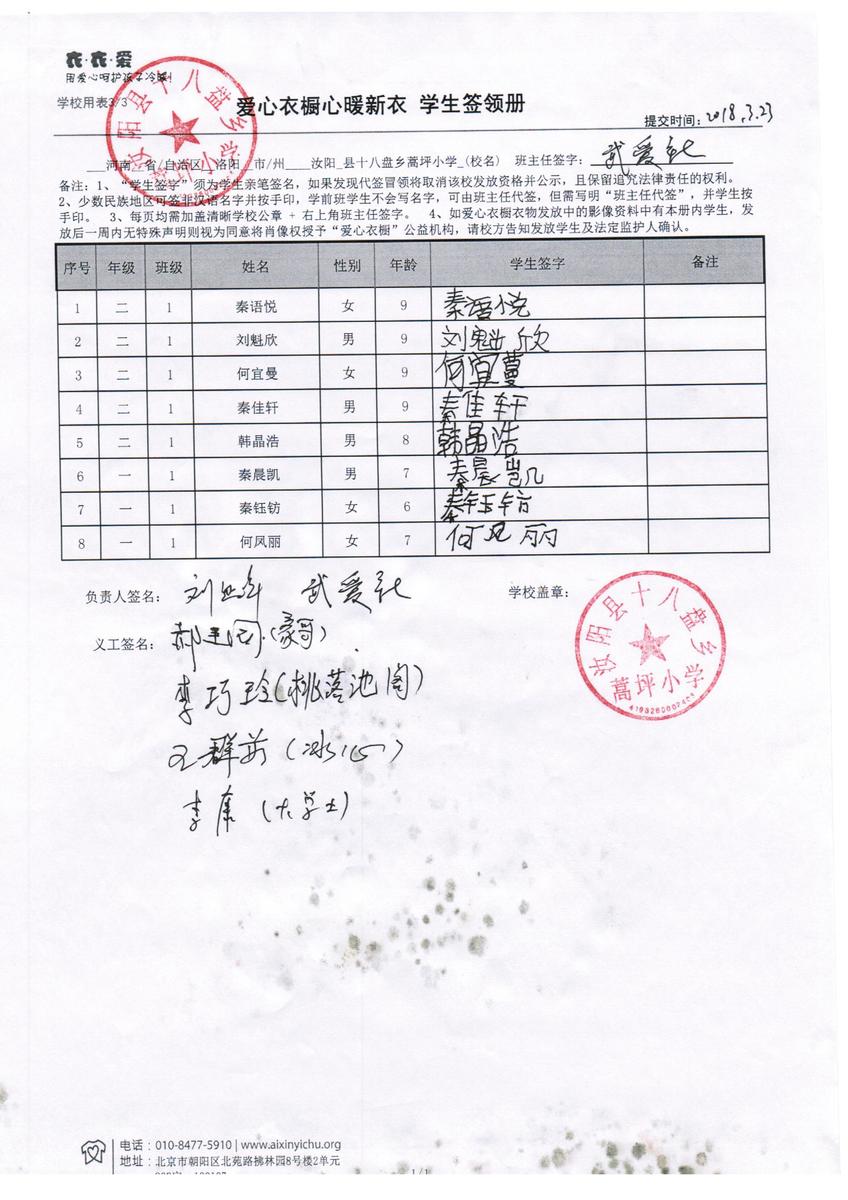 衣·衣·爱
用爱心呵护孩子冷暖!
学校用表3/3
爱心衣橱心暖新衣 学生签领册
提交时间:2018.3.23
河南 省/自治区 洛阳 市/州 汝阳 县十八盘乡蒿坪小学 (校名) 班主任签字: 武爱
备注:1、“学生签字”须为学生亲笔签名,如果发现代签冒领将取消该校发放资格并公示,且保留追究法律责任的权利。
2、少数民族地区可签非汉语名字并按手印,学前班学生不会写名字,可由班主任代签,但需写明“班主任代签”,并学生按
手印。 3、每页均需加盖清晰学校公章 + 右上角班主任签字。 4、如爱心衣橱衣物发放中的影像资料中有本册内学生,发
放后一周内无特殊声明则视为同意将肖像权授予“爱心衣橱”公益机构,请校方告知发放学生及法定监护人确认。
序号 年级 班级 姓名 性别 年龄 学生签字 备注
1 二 1 秦语悦 女 9 秦语悦
2 二 1 刘魁欣 男 9 刘魁欣
3 二 1 何宜曼 女 9 何宜蔓
4 二 1 秦佳轩 男 9 秦佳轩
5 二 1 韩晶浩 男 8 韩晶浩
6 一 1 秦晨凯 男 7 秦晨凯
7 一 1 秦钰钫 女 6 秦钰钫
8 一 1 何凤丽 女 7 何凤丽
负责人签名: 刘 武爱
学校盖章:
汝阳县十八盘乡
蒿坪小学
义工签名: 郝 (豪哥)
李巧玲(桃落池阁)
王群 (冰心)
李康 (大学士)
电话:010-8477-5910 | www.aixinyichu.org
地址:北京市朝阳区北苑路拂林园8号楼2单元
1/1